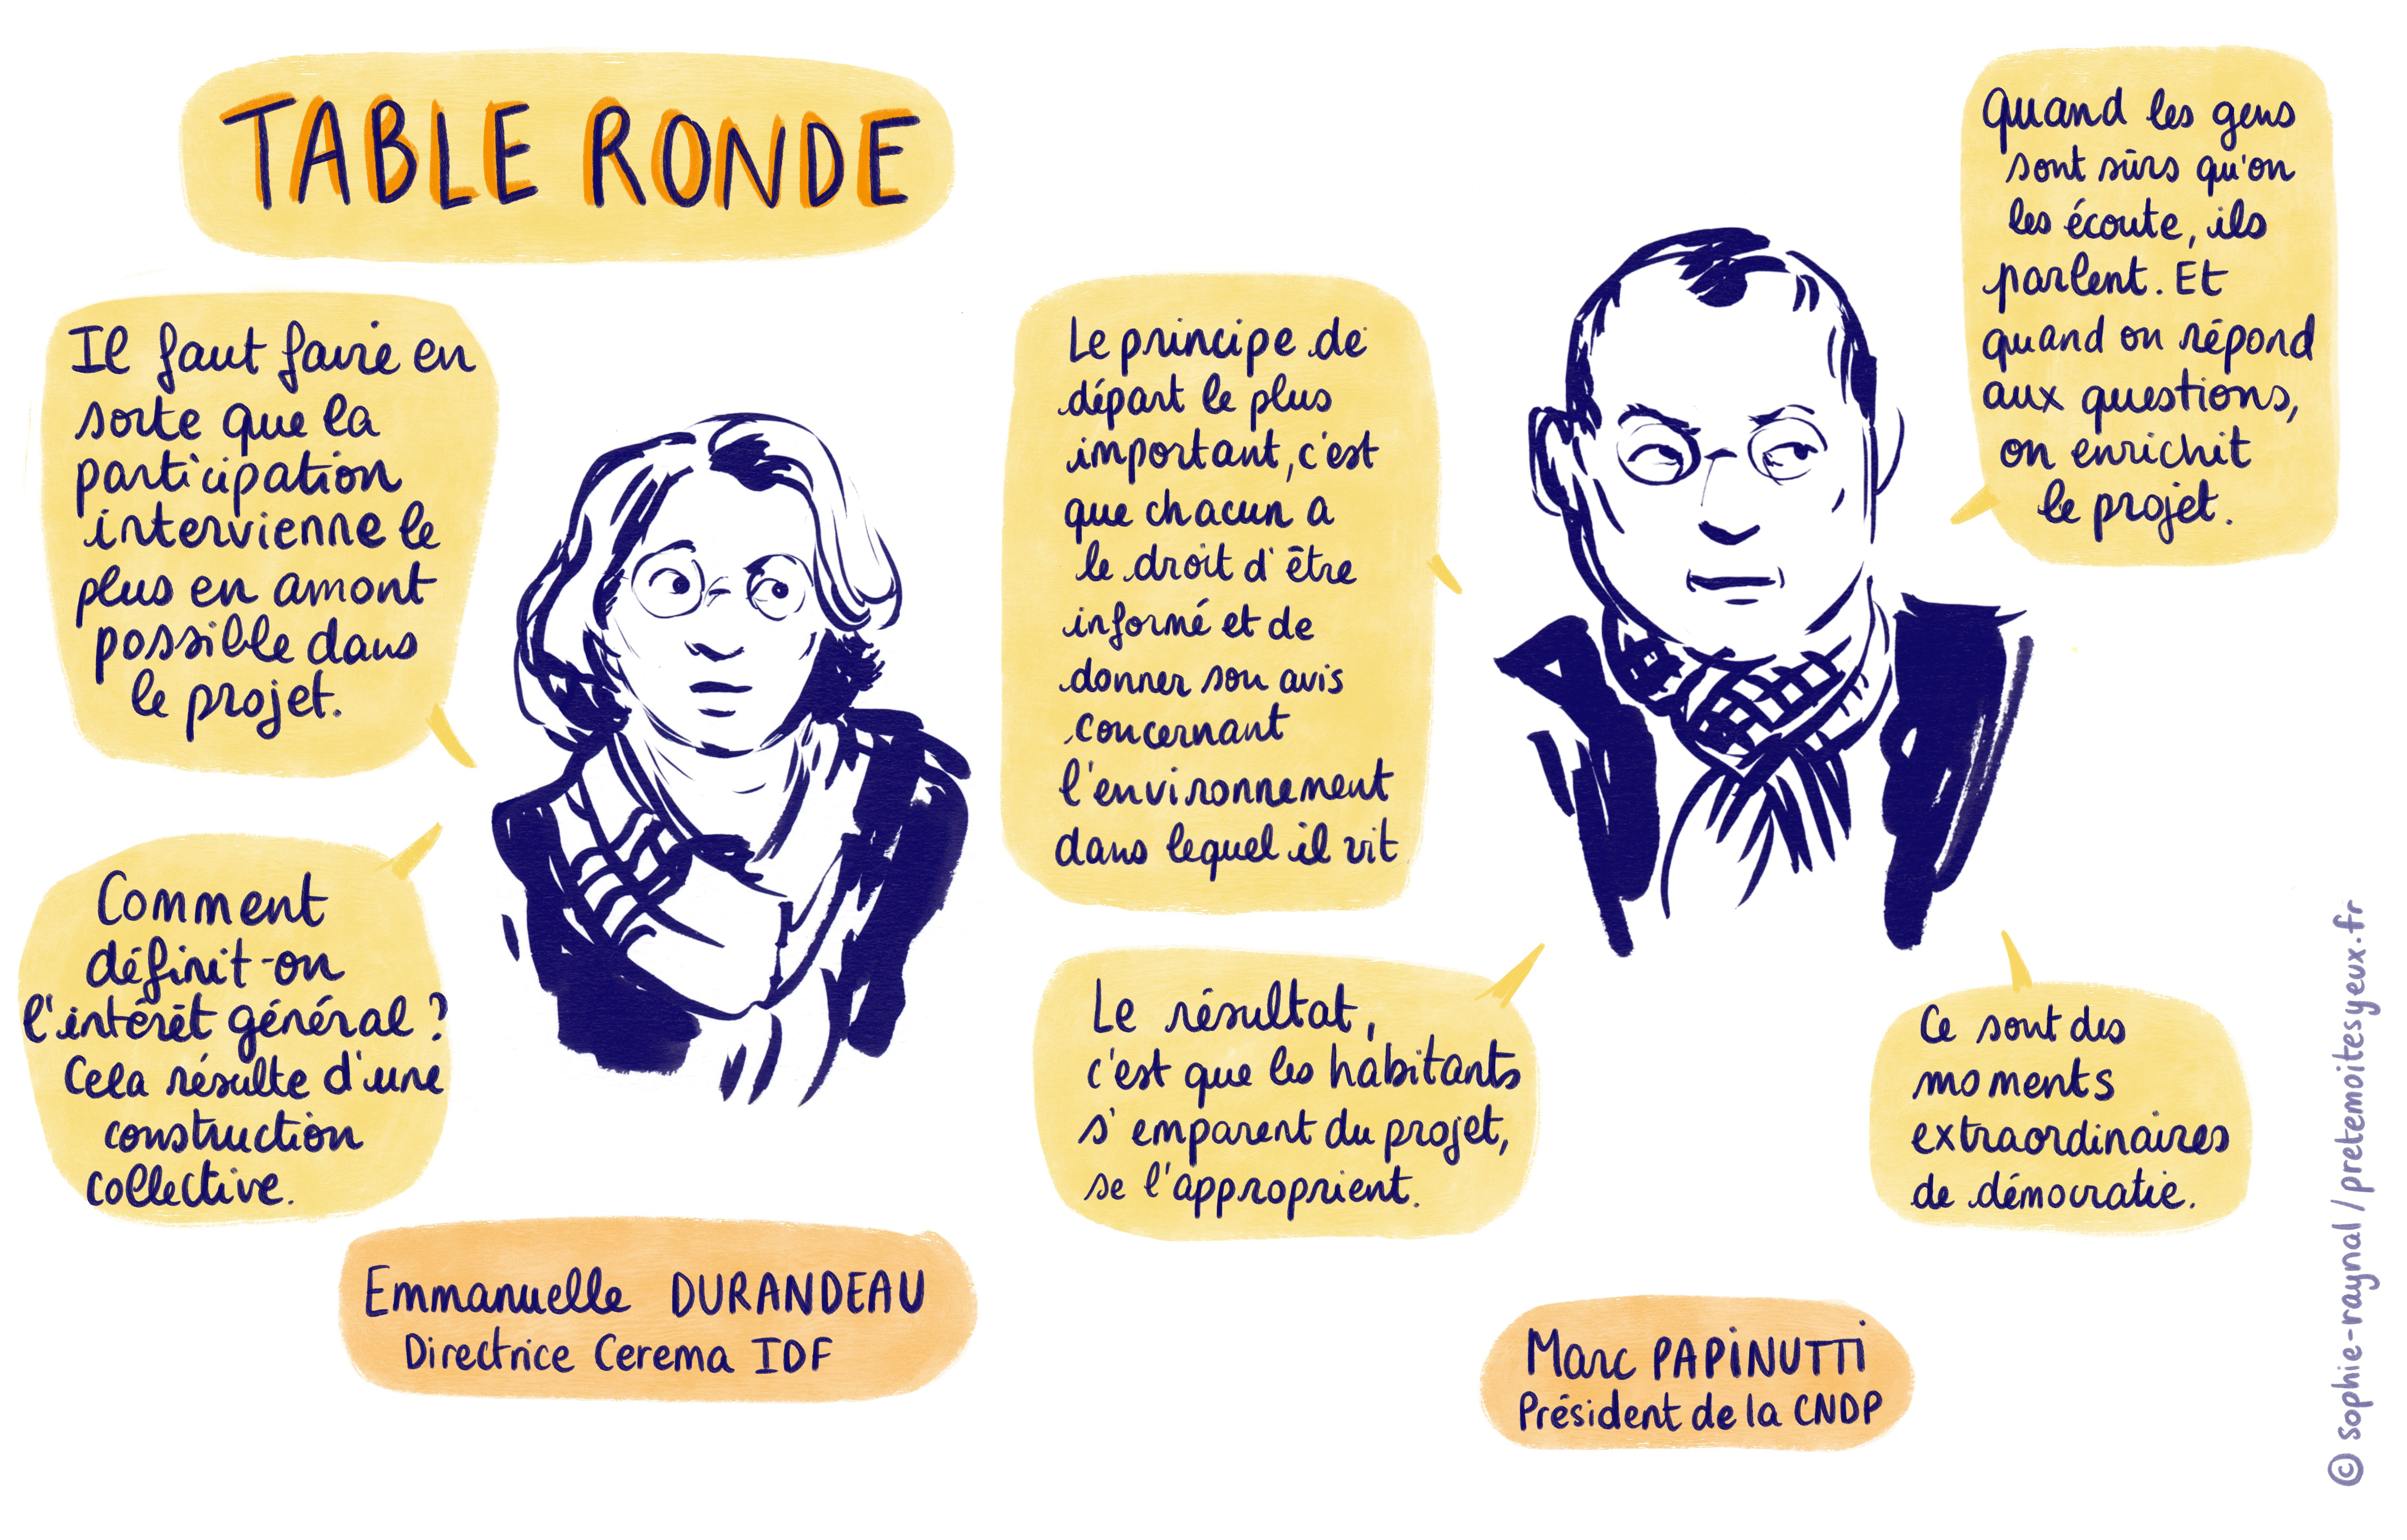 TABLE RONDE
Il faut faire en
sorte que la
participation
intervienne le
plus en amont
possible dans
le projet.
Comment
définit-on
l'intérêt général ?
Cela résulte d'une
construction
collective.
Emmanuelle DURANDEAU
Directrice Cerema IDF
Le principe de
départ le plus
important, c'est
que chacun a
le droit d'être
informé et de
donner son avis
concernant
l'environnement
dans lequel il vit
Le résultat,
c'est que les habitants
s'emparent du projet,
se l'approprient.
Quand les gens
sont sûrs qu'on
les écoute, ils
parlent. Et
quand on répond
aux questions,
on enrichit
le projet.
Ce sont des
moments
extraordinaires
de démocratie.
Marc PAPINUTTI
Président de la CNDP
© sophie-raynal / pretemoitesyeux.fr